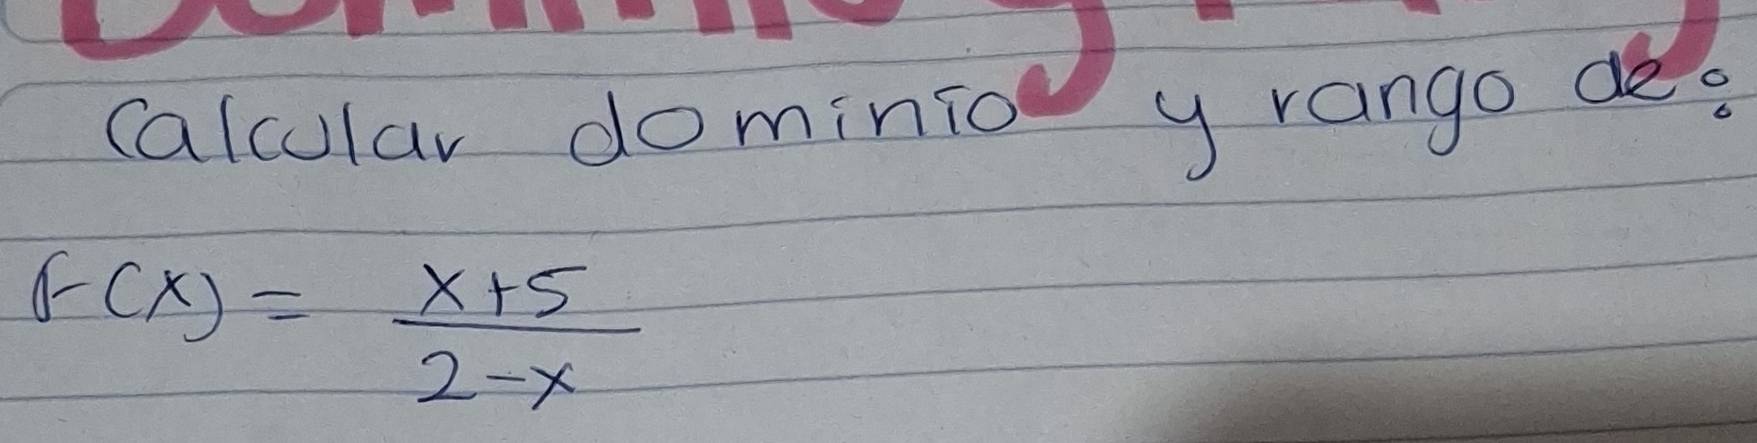 Calcular dominio y rango de:
f(x) = x+5
2-x